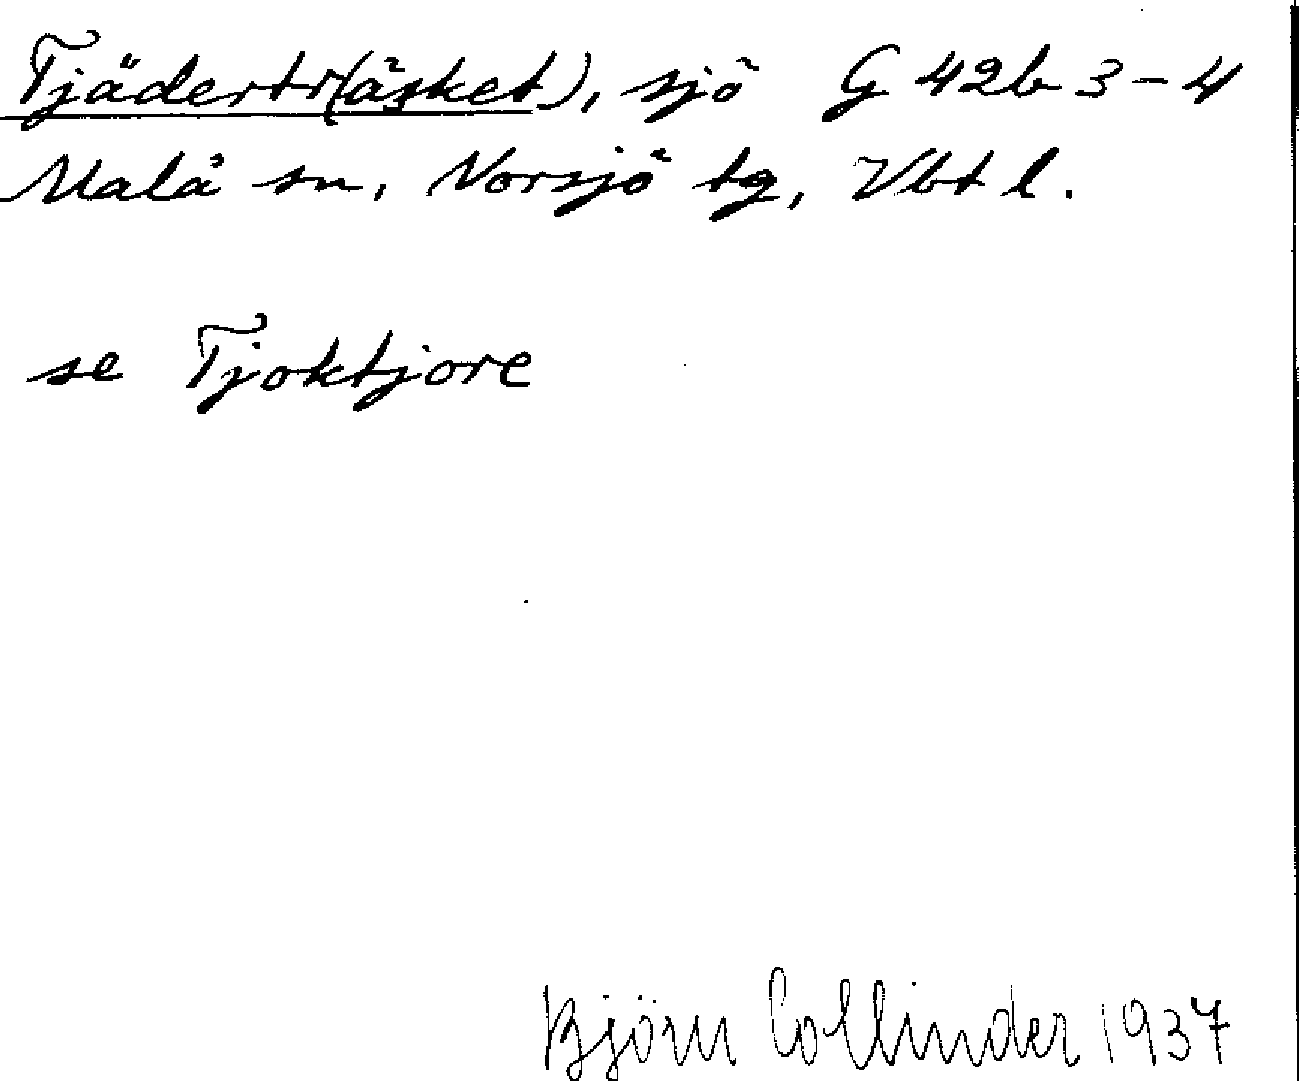 Tjädertr(äsket), sjö G 42b 3-4
Malå sn, Norsjö tg, Vbt l.
se Tjoktjore
Björn Collinder 1937